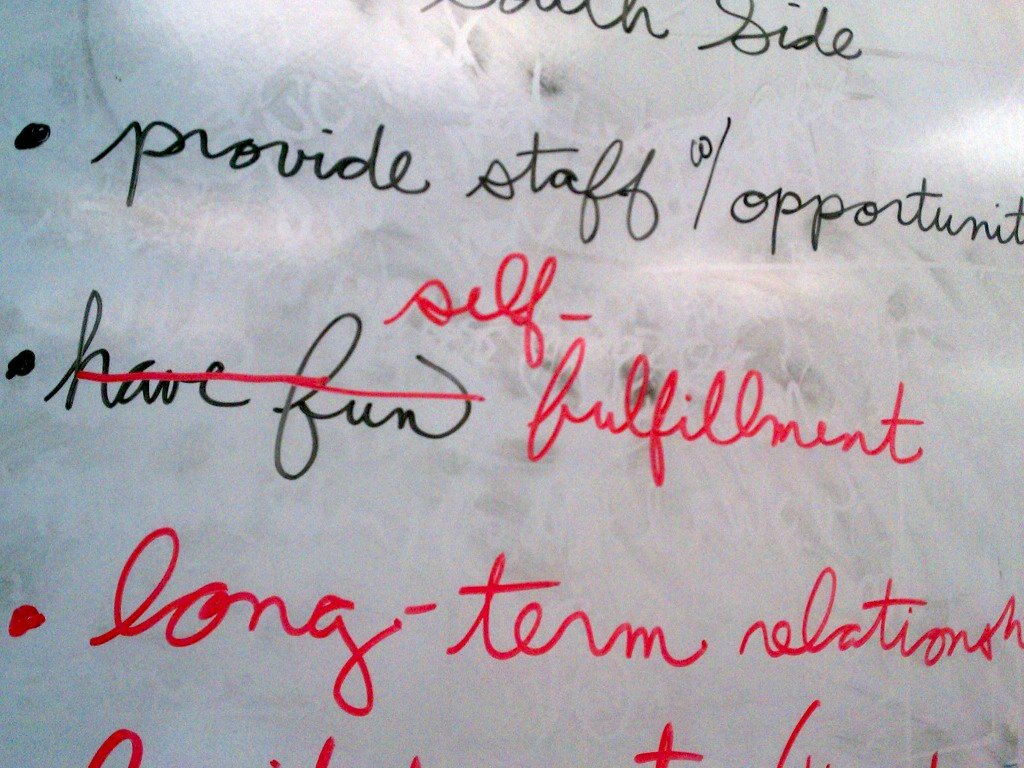 South Side
• provide staff w/ opportunit
self-
• have fun fulfillment
• long-term relationsh